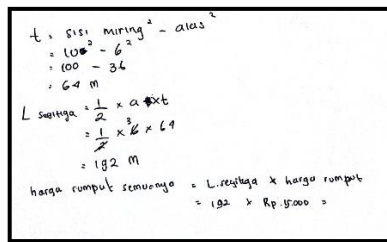 t = sisi miring² - alas²
= 10² - 6²
= 100 - 36
= 64 m
L segitiga = 1/2 × a × t
= 1/2 × 6 3 × 64
= 192 m
harga rumput semuanya = L. segitiga × harga rumput
= 192 × Rp. 15.000 =